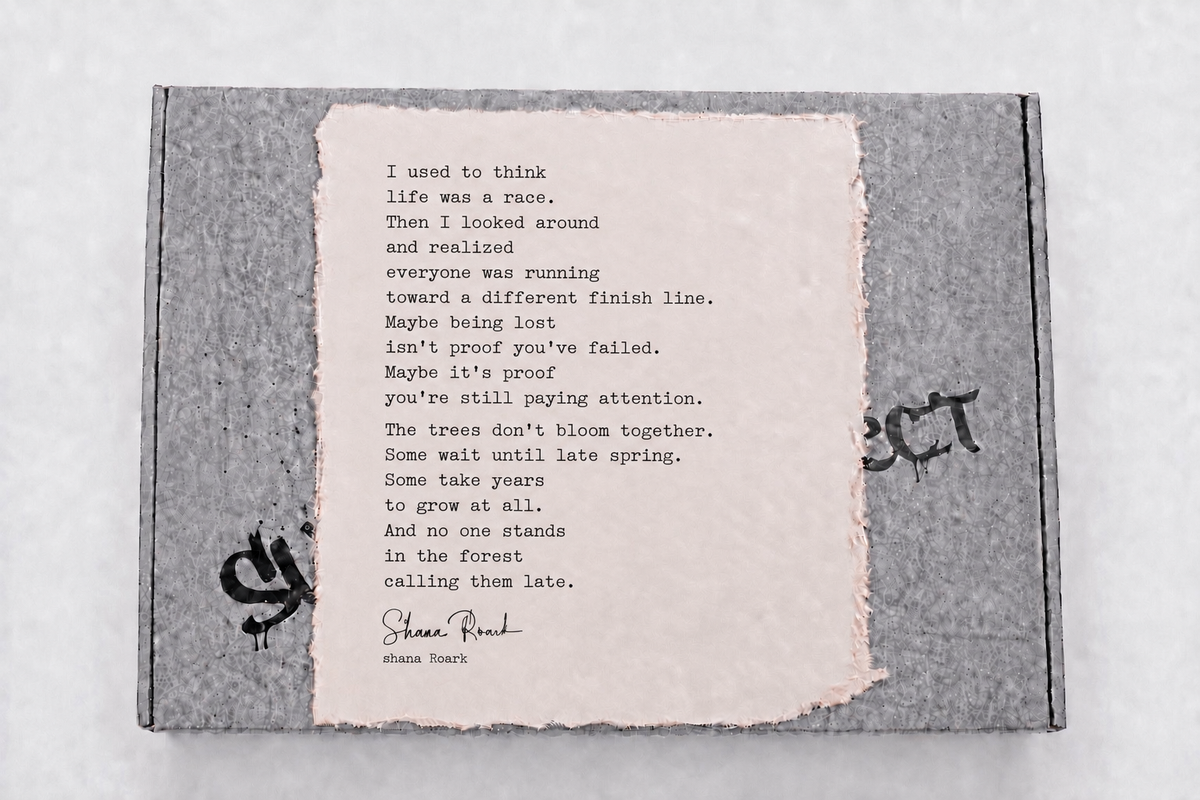 I used to think
life was a race.
Then I looked around
and realized
everyone was running
toward a different finish line.
Maybe being lost
isn't proof you've failed.
Maybe it's proof
you're still paying attention.
The trees don't bloom together.
Some wait until late spring.
Some take years
to grow at all.
And no one stands
in the forest
calling them late.
Shana Roark
shana Roark